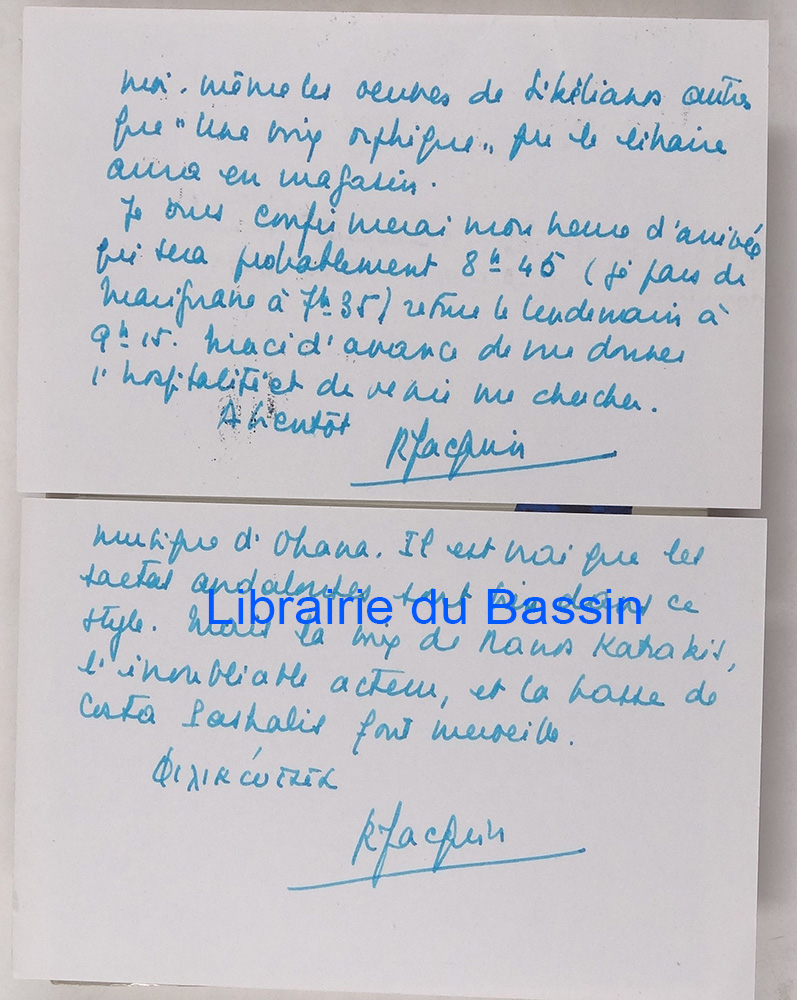 moi-même les oeuvres de Sikélianos autres
que "Une voix orphique" que le libraire
aura en magasin.
Je vous confirmerai mon heure d'arrivée
qui sera probablement 8h 45 (je pars de
Marignane à 7h 35) retour le lendemain à
9h 15. Merci d'avance de me donner
l'hospitalité et de venir me chercher.
A bientôt
R Jacquin
musique d'Ohana. Il est vrai que les
saetas andalouses sont bien dans ce
Librairie du Bassin
style. Mais la voix de Manos Katrakis,
l'inoubliable acteur, et la basse de
Costa Paskalis font merveille.
Φιλικώτατα
R Jacquin